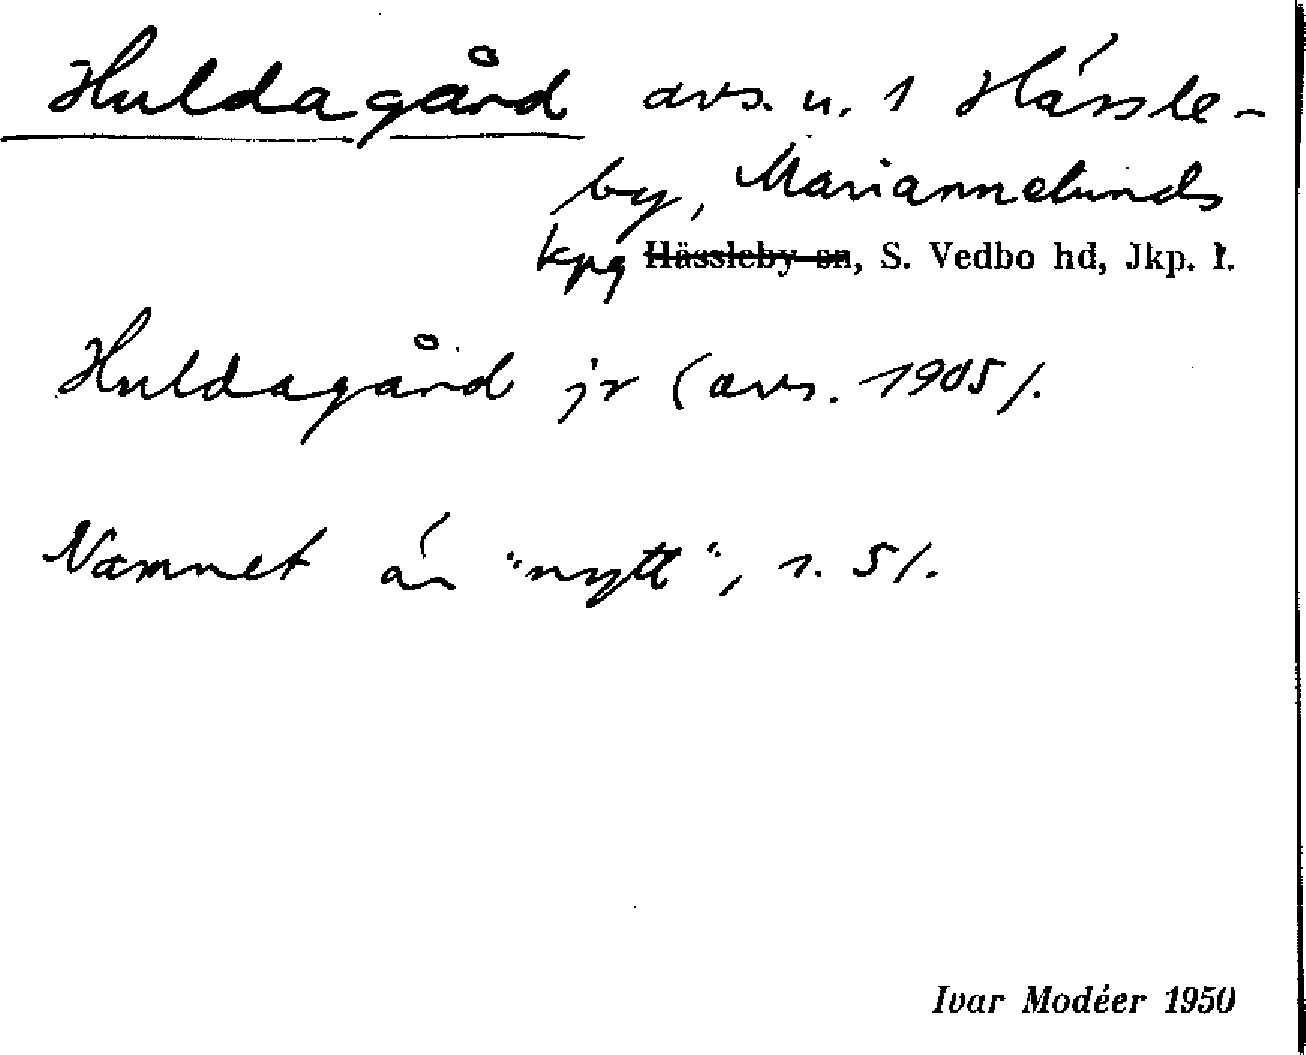 Huldagård avs. u. 1 Hässle-
by, Mariannelunds
kpg Hässleby sn, S. Vedbo hd, Jkp. l.
Huldagård jr (avs. 1905/.
Namnet är "nytt", s. 5/.
Ivar Modéer 1950